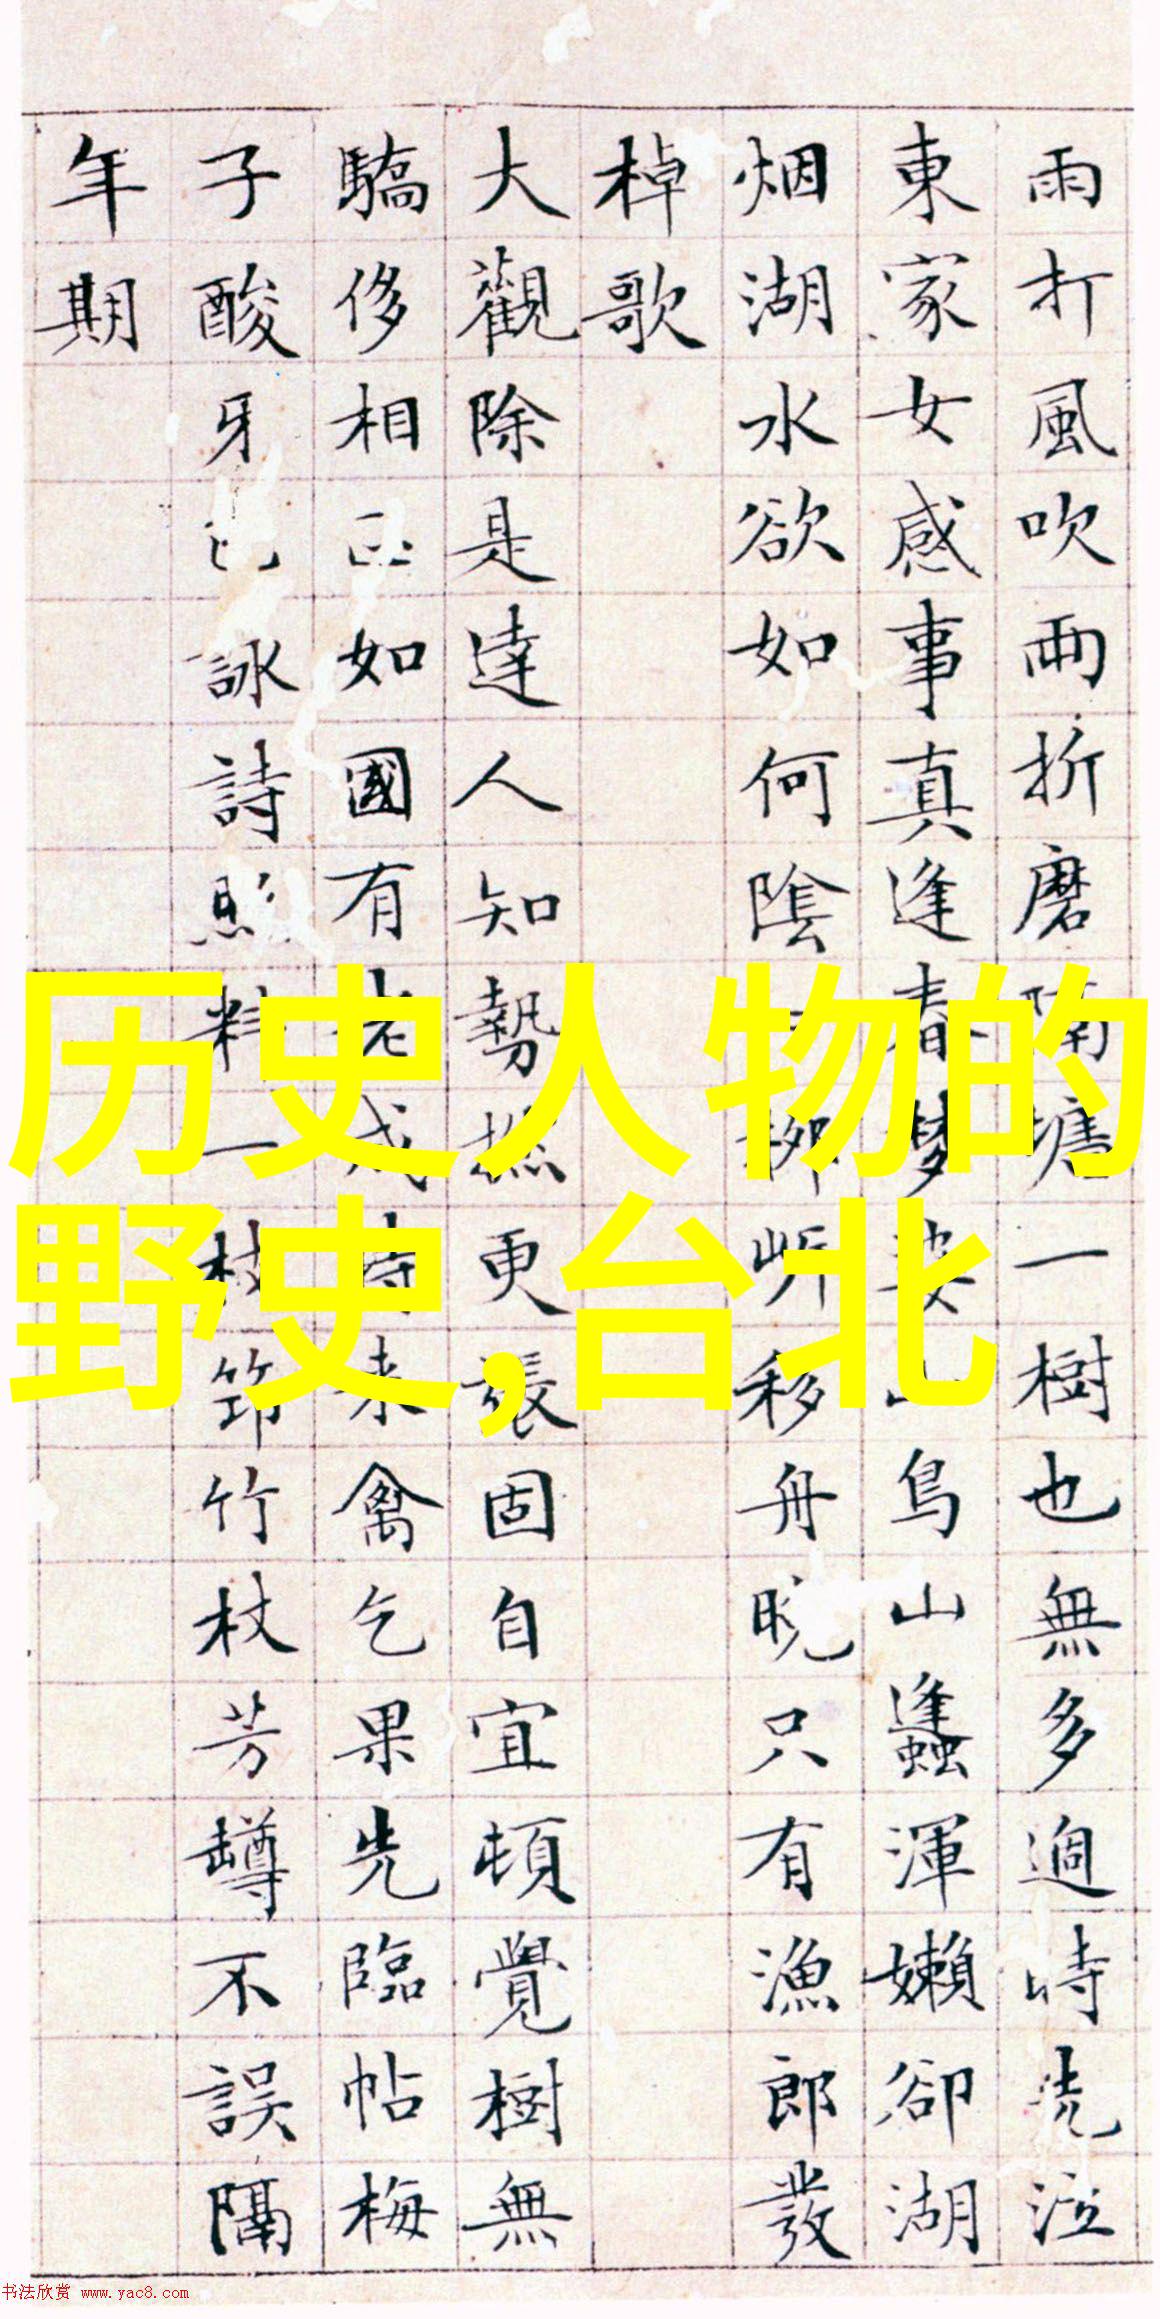 雨打風吹雨折磨南塘一樹也無多逈時洗泣
東家女感事真逢春夢婆山鳥山蠭渾嬾卻湖
烟湖水欲如何陰柳㟁移舟晚只有漁郎發
棹歌
大觀除是達人知勢橅更張固自宜頓覺樹無
驕侈相如國有老成時來禽乞果先臨帖梅
子酸牙詠詩照料一枝筇竹杖芳罇不誤隔
年期
历史人物的
野史,台北
书法欣赏 www.yac8.com